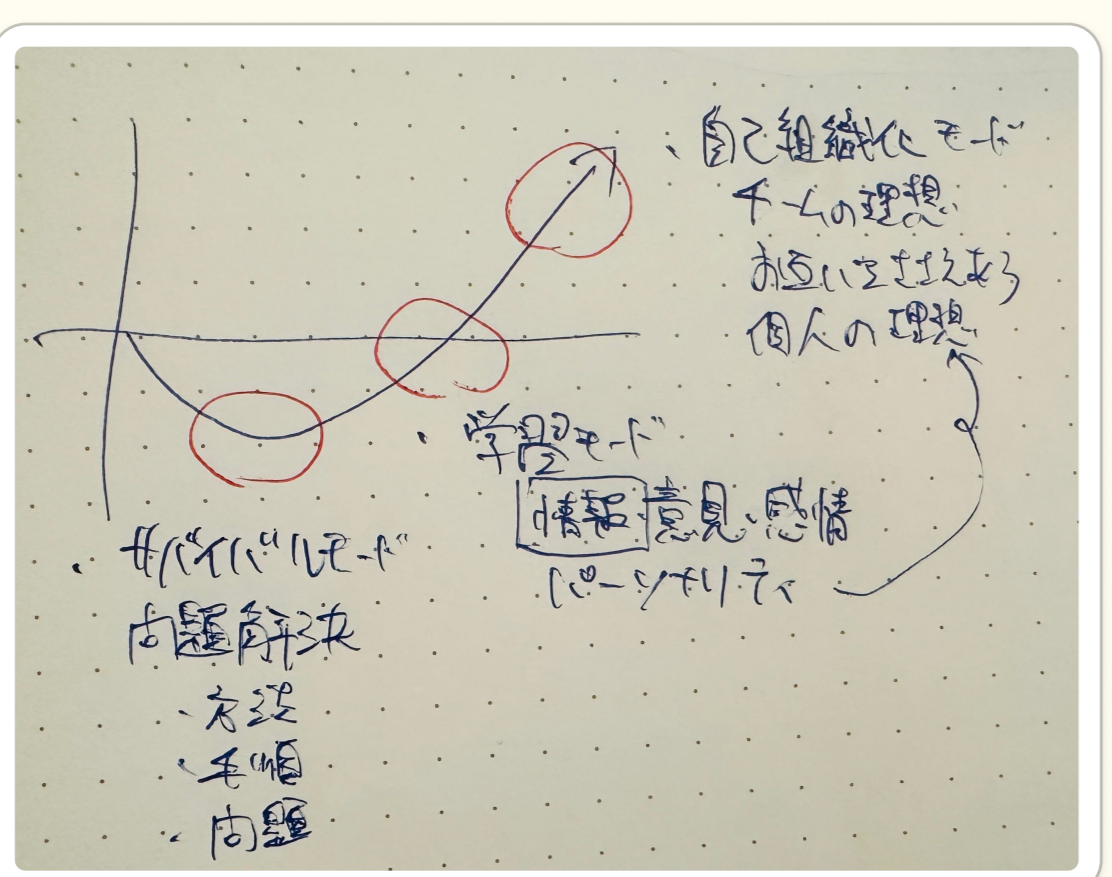 ・自己組織化モード
チームの理想
お互いをささえあう
個人の理想
・学習モード
情報 意見、感情
パーソナリティ
・サバイバルモード
問題解決
・方法
・手順
・問題